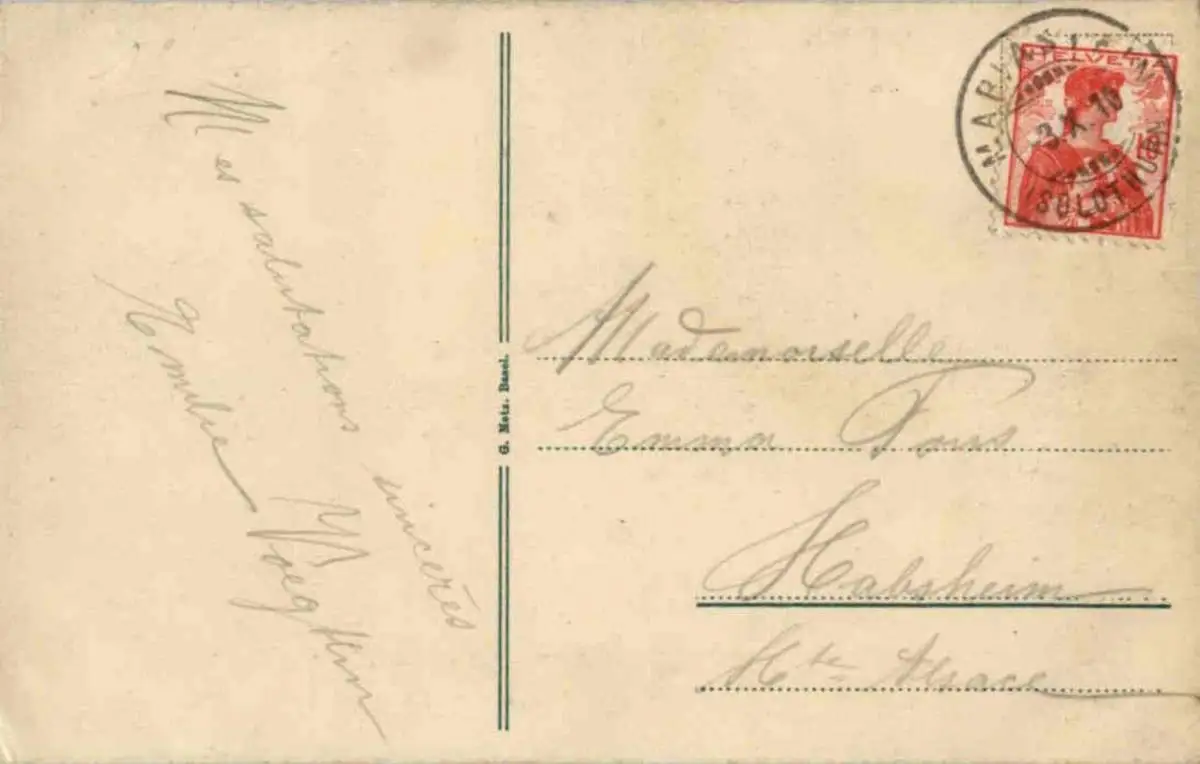 Mes salutations sincerès
Emilie Voegtlin
G. Metz. Basel.
HELVETIA
MARIASTEIN
3.X.10
(SOLOTHURN)
Mademoiselle
Emma
Habsheim
Hte Alsace